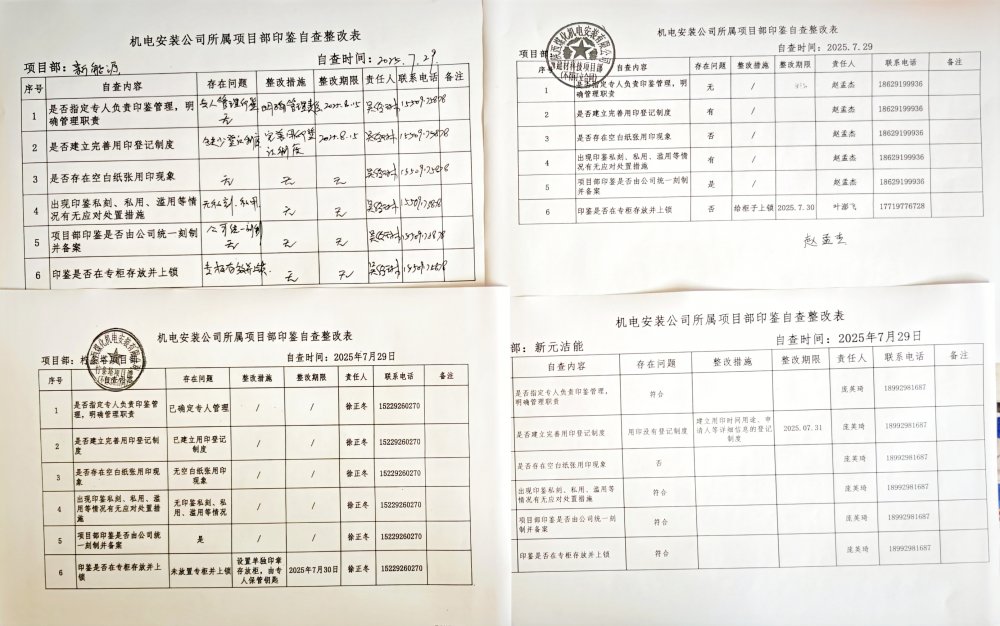 机电安装公司所属项目部印鉴自查整改表
项目部: 新能源 自查时间: 2025.7.29
序号 自查内容 存在问题 整改措施 整改期限 责任人 联系电话 备注
1 是否指定专人负责印鉴管理,明确管理职责 无 2025.8.15
2 是否建立完善用印登记制度 缺少登记制度 完善用印登记制度 2025.8.15
3 是否存在空白纸张用印现象 无 无 无
4 出现印鉴私刻、私用、滥用等情况有无应对处置措施 无私刻、私用 无 无
5 项目部印鉴是否由公司统一刻制并备案 公司统一刻制 无 无 无
6 印鉴是否在专柜存放并上锁 专柜存放并上锁. 无 无
机电安装公司所属项目部印鉴自查整改表
项目部 自查时间: 2025.7.29
序号 自查内容 存在问题 整改措施 整改期限 责任人 联系电话 备注
1 是否指定专人负责印鉴管理,明确管理职责 无 / 赵孟杰 18629199936
2 是否建立完善用印登记制度 有 / 赵孟杰 18629199936
3 是否存在空白纸张用印现象 否 / 赵孟杰 18629199936
4 出现印鉴私刻、私用、滥用等情况有无应对处置措施 有 / 赵孟杰 18629199936
5 项目部印鉴是否由公司统一刻制并备案 是 / 赵孟杰 18629199936
6 印鉴是否在专柜存放并上锁 否 给柜子上锁 2025.7.30 叶澎飞 17719776728
赵孟杰
机电安装公司所属项目部印鉴自查整改表
项目部: 自查时间: 2025年7月29日
序号 自查内容 存在问题 整改措施 整改期限 责任人 联系电话 备注
1 是否指定专人负责印鉴管理,明确管理职责 已确定专人管理 / / 徐正冬 15229260270
2 是否建立完善用印登记制度 已建立用印登记制度 / / 徐正冬 15229260270
3 是否存在空白纸张用印现象 无空白纸张用印现象 / / 徐正冬 15229260270
4 出现印鉴私刻、私用、滥用等情况有无应对处置措施 无印鉴私刻、私用、滥用情况 / / 徐正冬 15229260270
5 项目部印鉴是否由公司统一刻制并备案 是 / / 徐正冬 15229260270
6 印鉴是否在专柜存放并上锁 未放置专柜并上锁 设置单独印章存放柜,由专人保管钥匙 2025年7月30日 徐正冬 15229260270
机电安装公司所属项目部印鉴自查整改表
部: 新元洁能 自查时间: 2025年7月29日
自查内容 存在问题 整改措施 整改期限 责任人 联系电话 备注
是否指定专人负责印鉴管理,明确管理职责 符合 庞英琦 18992981687
是否建立完善用印登记制度 用印没有登记制度 建立用印时间用途、申请人等详细信息的登记制度 2025.07.31 庞英琦 18992981687
是否存在空白纸张用印现象 否 庞英琦 18992981687
出现印鉴私刻、私用、滥用等情况有无应对处置措施 符合 庞英琦 18992981687
项目部印鉴是否由公司统一刻制并备案 符合 庞英琦 18992981687
印鉴是否在专柜存放并上锁 符合 庞英琦 18992981687